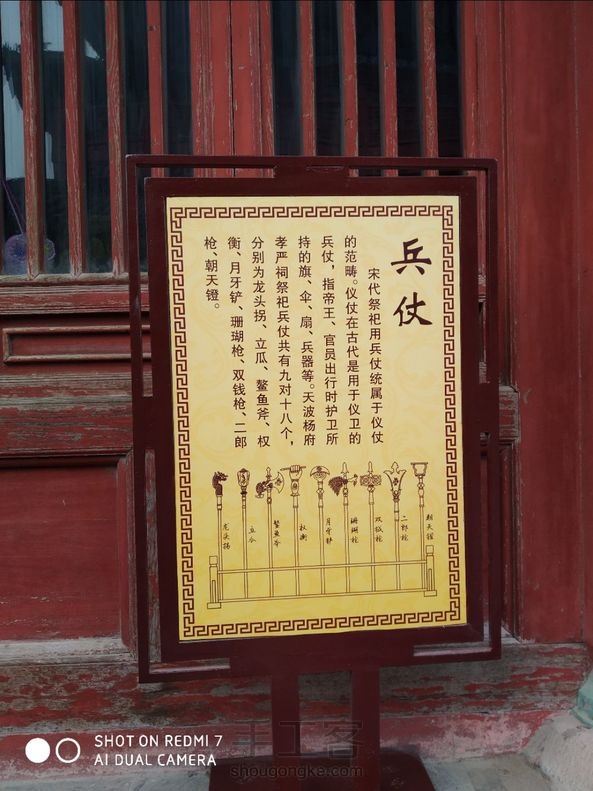 兵仗
宋代祭祀用兵仗统属于仪仗
的范畴。仪仗在古代是用于仪卫的
兵仗，指帝王、官员出行时护卫所
持的旗、伞、扇、兵器等。天波杨府
孝严祠祭祀兵仗共有九对十八个，
分别为龙头拐、立瓜、鳌鱼斧、权
衡、月牙铲、珊瑚枪、双钱枪、二郎
枪、朝天镫。
朝天镫
二郎枪
双钱枪
珊瑚枪
月牙铲
权衡
鳌鱼斧
立瓜
龙头拐
SHOT ON REDMI 7
AI DUAL CAMERA
手工客
shougongke.com